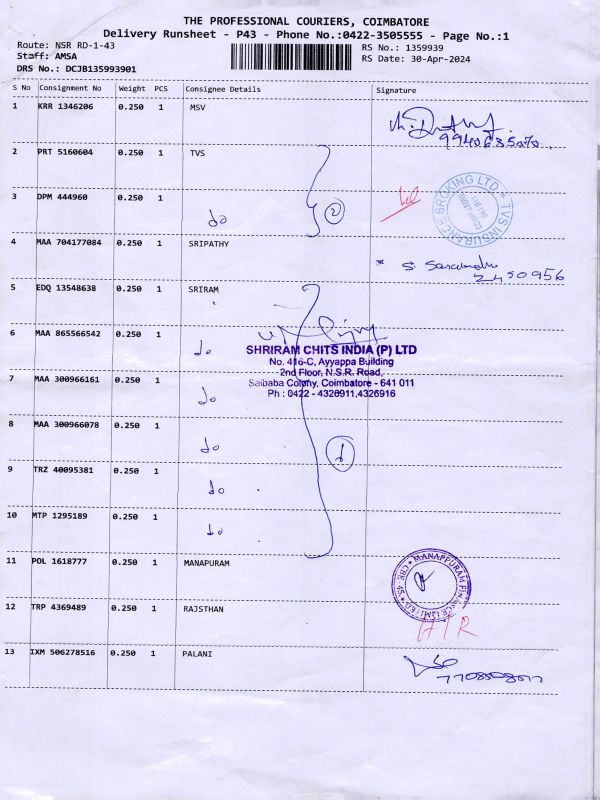 THE PROFESSIONAL COURIERS, COIMBATORE
Delivery Runsheet - P43 - Phone No.:0422-3505555 - Page No.:1
Route: NSR RD-1-43
RS No.: 1359939
Staff: AMSA
RS Date: 30-Apr-2024
DRS No.: DCJB135993901
S No Consignment No Weight PCS Consignee Details Signature
1 KRR 1346206 0.250 1 MSV
9940685070
2 PRT 5160604 0.250 1 TVS
3 DPM 444960 0.250 1 do 2
TVS INSURANCE BROKING LTD
4 MAA 704177084 0.250 1 SRIPATHY
2450956
5 EDQ 13548638 0.250 1 SRIRAM
6 MAA 865566542 0.250 1 do
SHRIRAM CHITS INDIA (P) LTD
No. 416-C, Ayyappa Building
2nd Floor, N.S.R. Road,
Saibaba Colony, Coimbatore - 641 011
Ph : 0422 - 4326911,4326916
7 MAA 300966161 0.250 1 do
8 MAA 300966078 0.250 1 do
9 TRZ 40095381 0.250 1 do
10 MTP 1295189 0.250 1 do
11 POL 1618777 0.250 1 MANAPURAM
MANAPPURAM FINANCE LIMITED
12 TRP 4369489 0.250 1 RAJSTHAN
13 IXM 506278516 0.250 1 PALANI